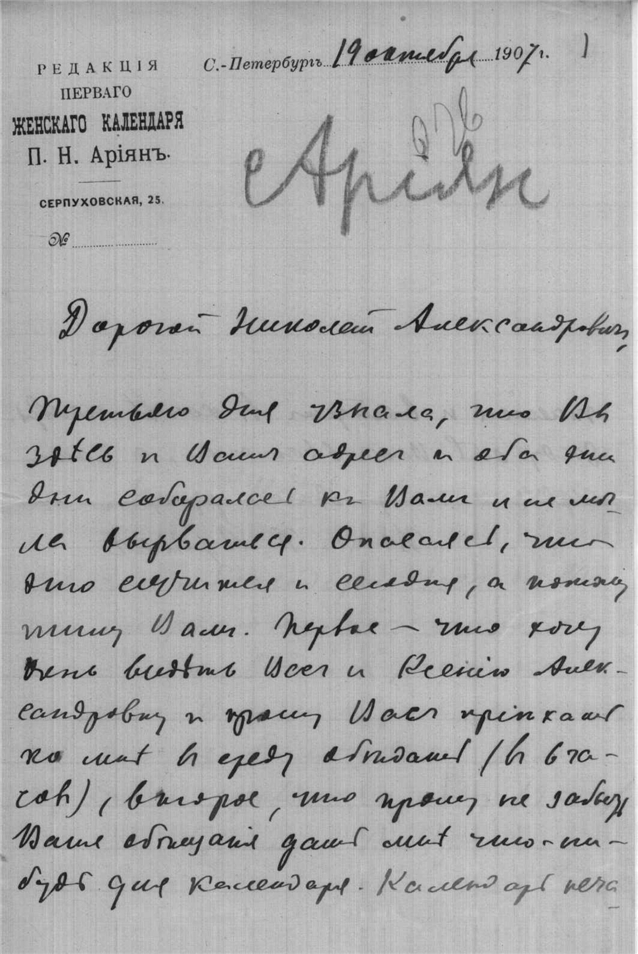 1
РЕДАКЦІЯ
ПЕРВАГО
ЖЕНСКАГО КАЛЕНДАРЯ
П. Н. Аріянъ.
СЕРПУХОВСКАЯ, 25.
№
С.-Петербургъ 19 октября 1907 г.
Аріян
Дорогой Николай Александрович,
Третьяго дня узнала, что Вы
здѣсь и Вашъ адрес и оба эти
дни собиралась къ Вамъ и не мог-
ла вырваться. Опасаюсь, что
это случится и сегодня, а потому
пишу Вамъ. Первое – что хочу
очень видѣть Васъ и Ксенію Алек-
сандровну и прошу Васъ пріѣхать
ко мнѣ в среду обѣдать (в 6 ча-
сов), второе, что прошу не забыть
Ваше обѣщаніе дать мнѣ что-ни-
будь для календаря. Календарь печа